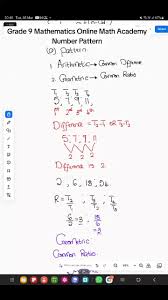 20:46 Tue, 05 Mar
Grade 9 Mathematics Online Math Academy
Number Pattern
(a) Pattern
1. Arithmetic → Common Difference
2. Geometric → Common Ratio
T₁ T₂ T₃ T₄
5, 7, 9, 11,
1st 2nd 3rd 4th
Difference = T₂-T₁ OR T₃-T₂
5, 7, 9, 11
2 2 2
Difference is 2
2, 6, 18, 54
R =
= 3
Geometric
Common Ratio